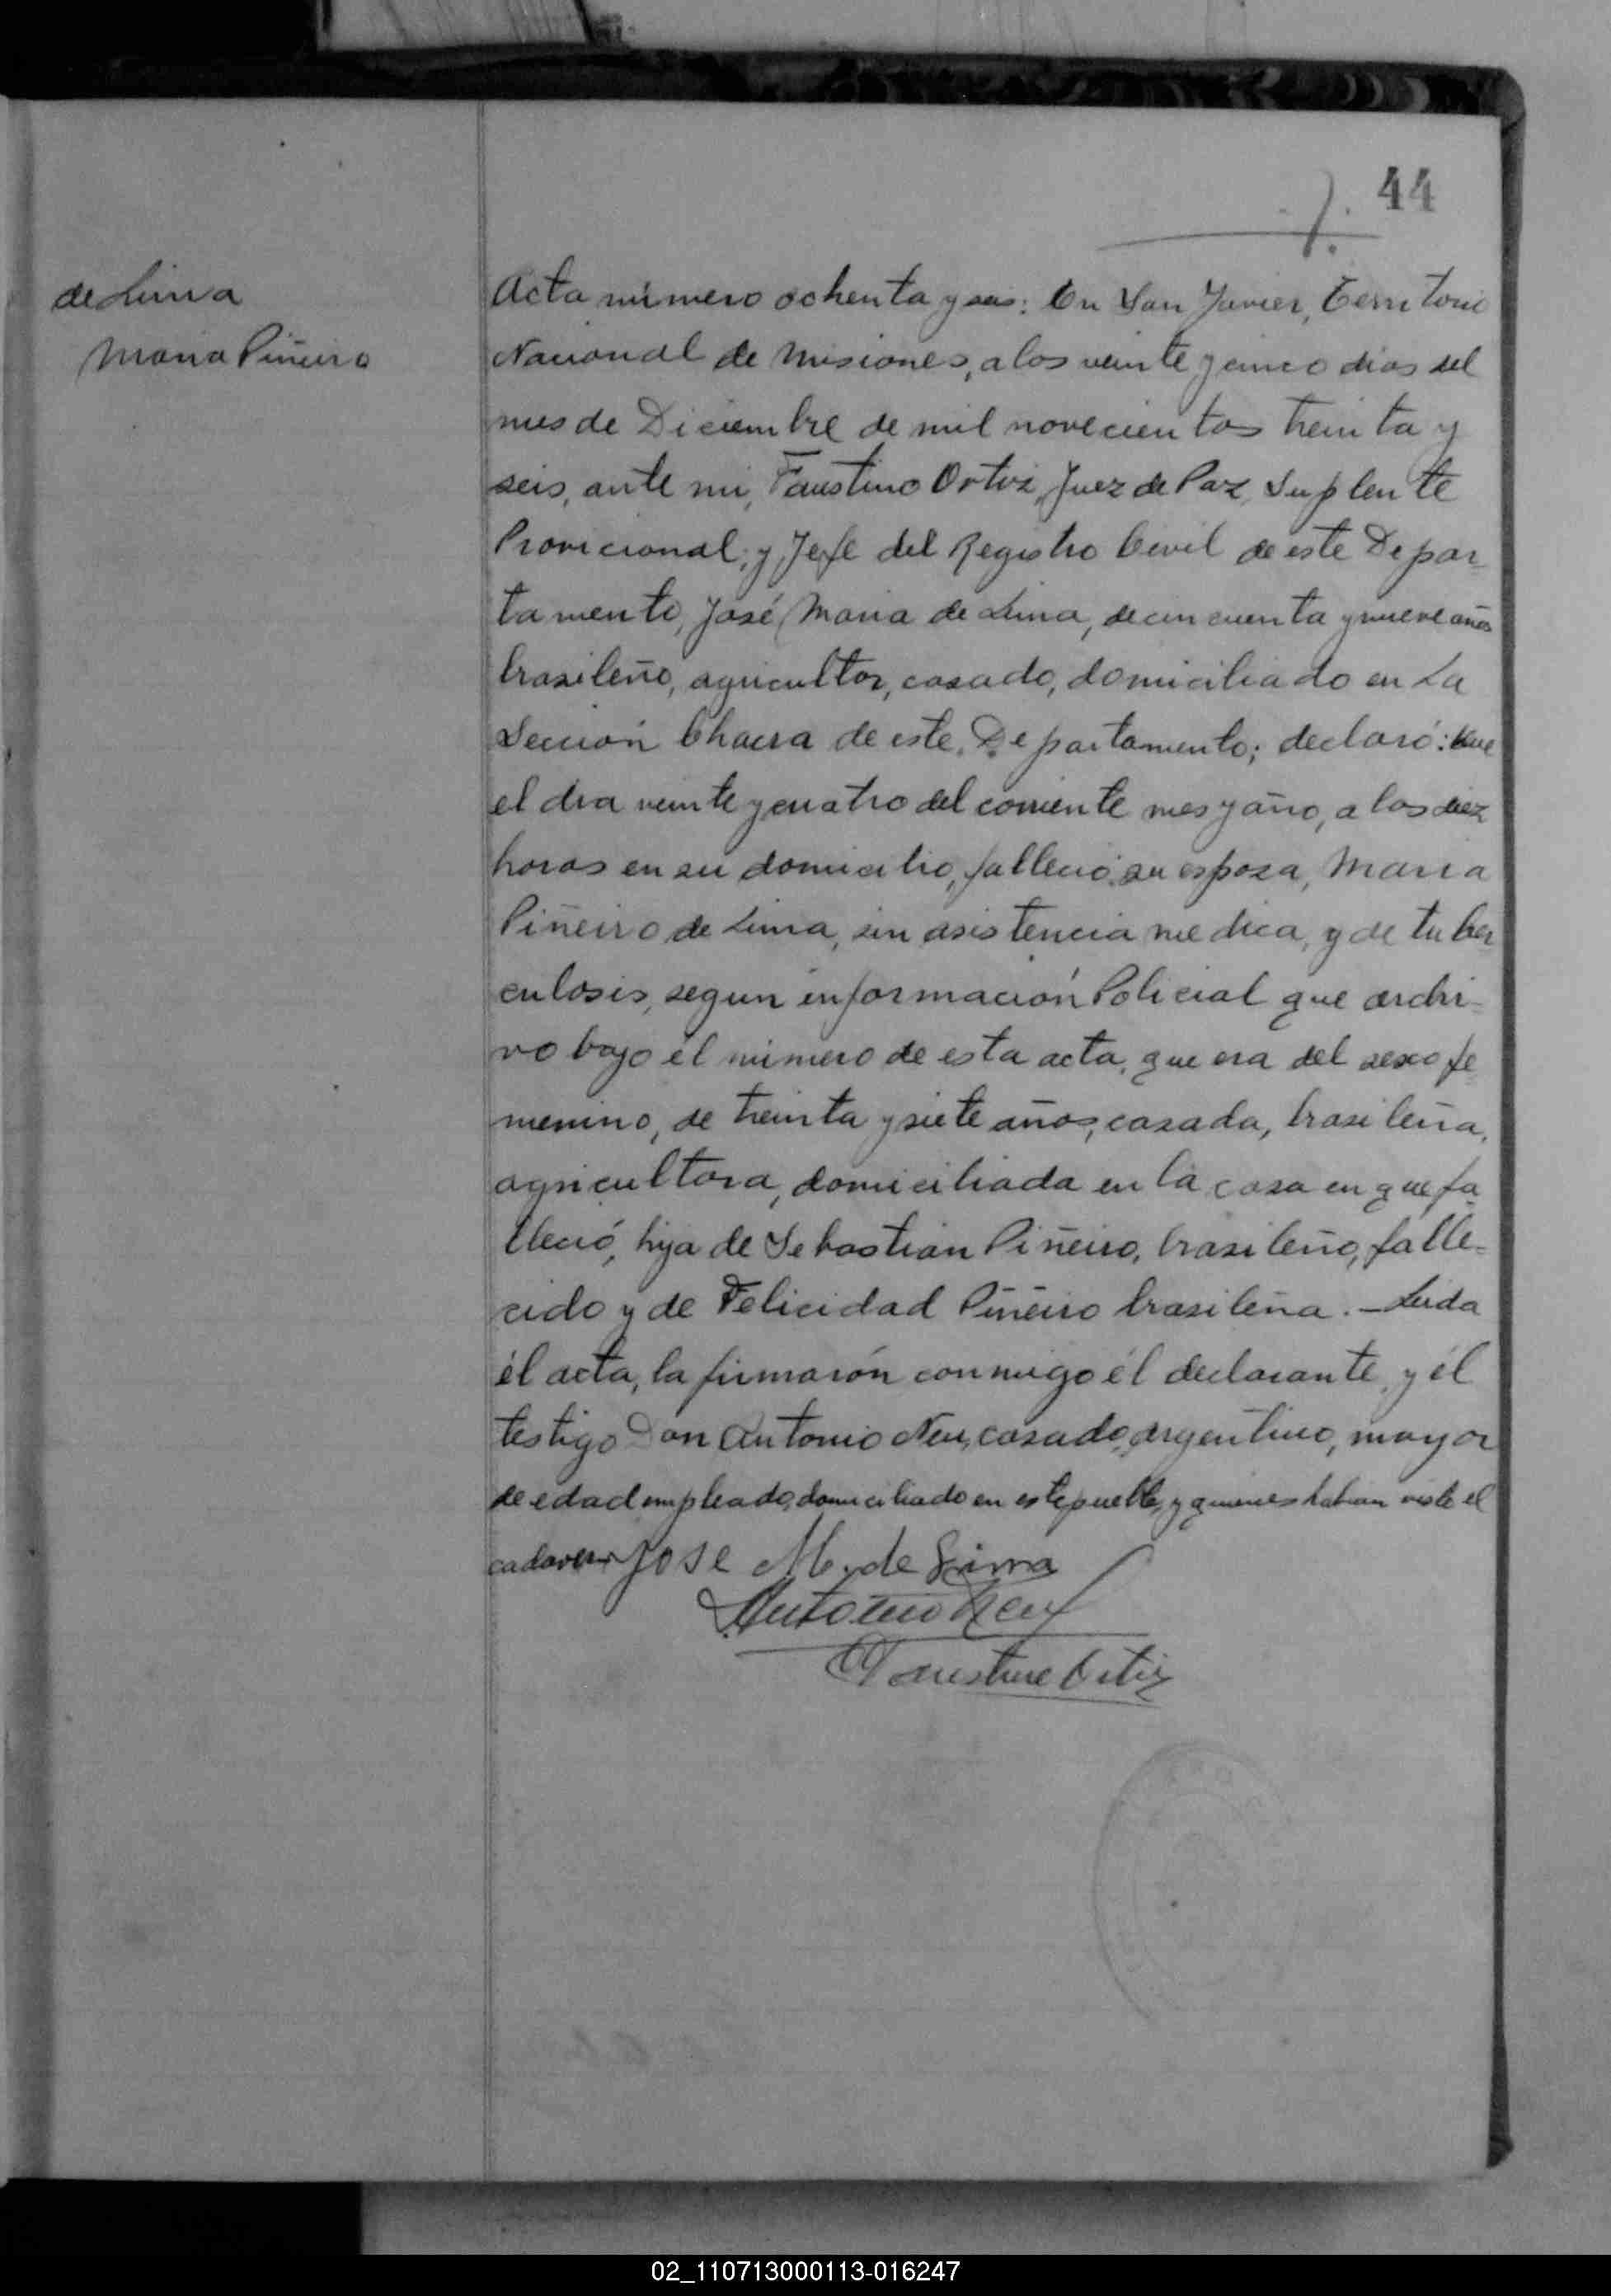 44
de Lima
Maria Piñeiro
Acta número ochenta y seis: En San Javier, Territorio
Nacional de Misiones, a los veinte y cinco dias del
mes de Diciembre de mil novecientos treinta y
seis, ante mi, Faustino Ortiz, Juez de Paz, Suplente
Provicional, y Jefe del Registro Civil de este Depar-
tamento, José Maria de Lima, de cincuenta y nueve años
brasileño, agricultor, casado, domiciliado en La
Sección Chacra de este Departamento; declaró: Que
el dia veinte y cuatro del corriente mes y año, a las diez
horas en su domicilio, falleció su esposa, Maria
Piñeiro de Lima, sin asistencia medica, y de tuber
culosis, segun información Policial que archi-
vo bajo él número de esta acta, que era del sexo fe
menino, de treinta y siete años, casada, brasileña,
agricultora, domiciliada en la casa en que fa
lleció, hija de Sebastián Piñeiro, brasileño, falle-
cido y de Felicidad Piñeiro brasileña. — Leida
él acta, la firmarón conmigo él declarante, y él
testigo Don Antonio Neu, casado, argentino, mayor
de edad empleado, domiciliado en este pueblo, y quienes habian visto el
cadaver. Jose M. de Lima
Antonio Neu
Faustino Ortiz
02_110713000113-016247